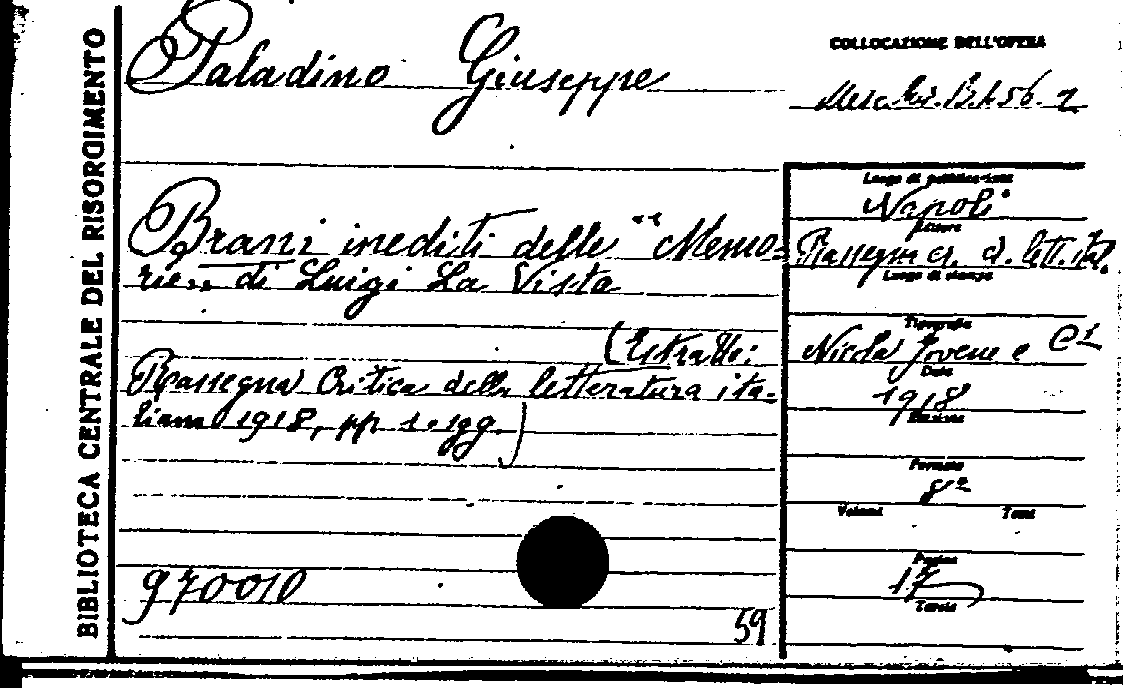 BIBLIOTECA CENTRALE DEL RISORGIMENTO
Paladino Giuseppe
Brani inediti delle "Memo-
rie„ di Luigi La Vista
(Estratto:
Rassegna Critica della letteratura ita-
liana 1918, pp 1. sgg.)
970010
59
COLLOCAZIONE DELL'OPERA
B.1.56.
Luogo di pubblicazione
Napoli
Editore
Rassegna cr. d. lett. ital.
Luogo di stampa
Tipografia
Nicola Jovene e Cⁱ
Data
1918
Edizione
Formato
8º
Volumi Tomi
Pagine
17
Tavole